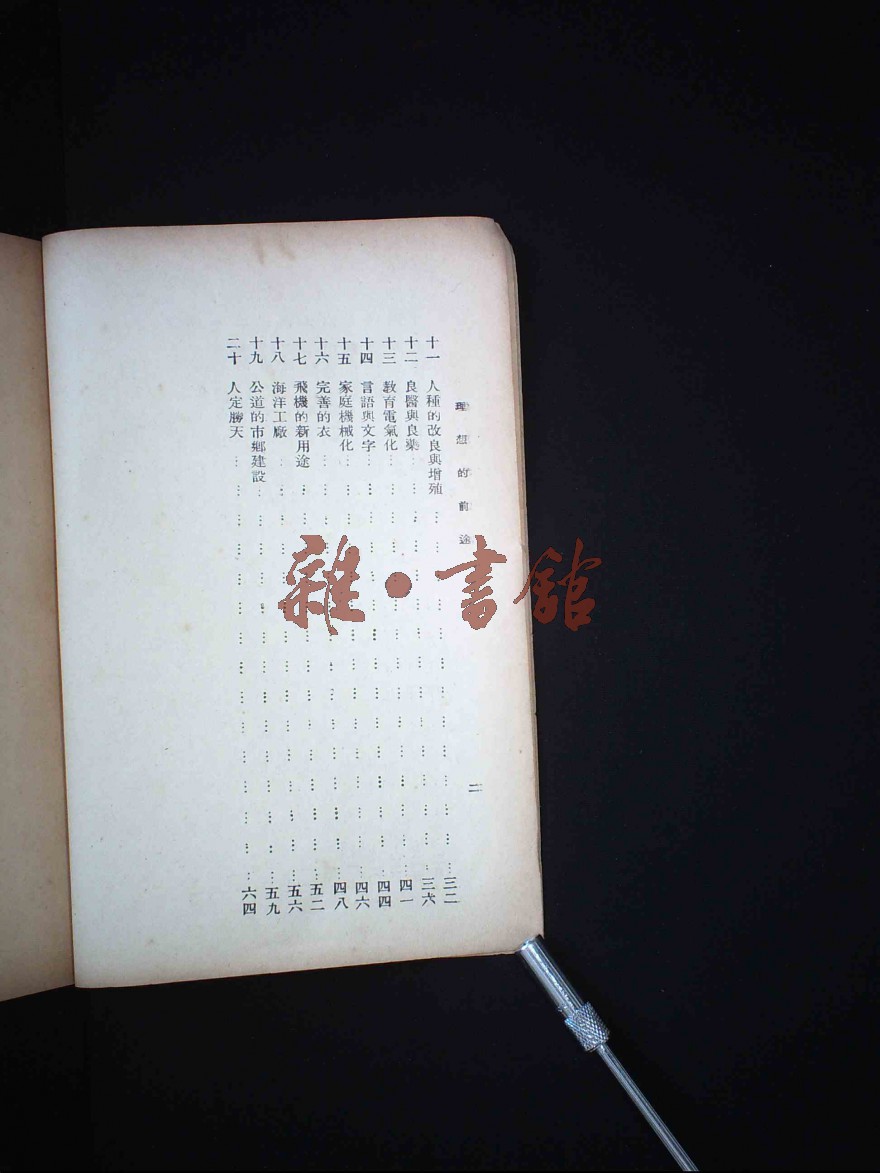 理想的前途
二
十一 人種的改良與增殖 …………………………………… 三二
十二 良醫與良藥 …………………………………… 三六
十三 教育電氣化 …………………………………… 四一
十四 言語與文字 …………………………………… 四四
十五 家庭機械化 …………………………………… 四六
十六 完善的衣 …………………………………… 四八
十七 飛機的新用途 …………………………………… 五二
十八 海洋工廠 …………………………………… 五六
十九 公道的市鄉建設 …………………………………… 五九
二十 人定勝天 …………………………………… 六四
雜·書館